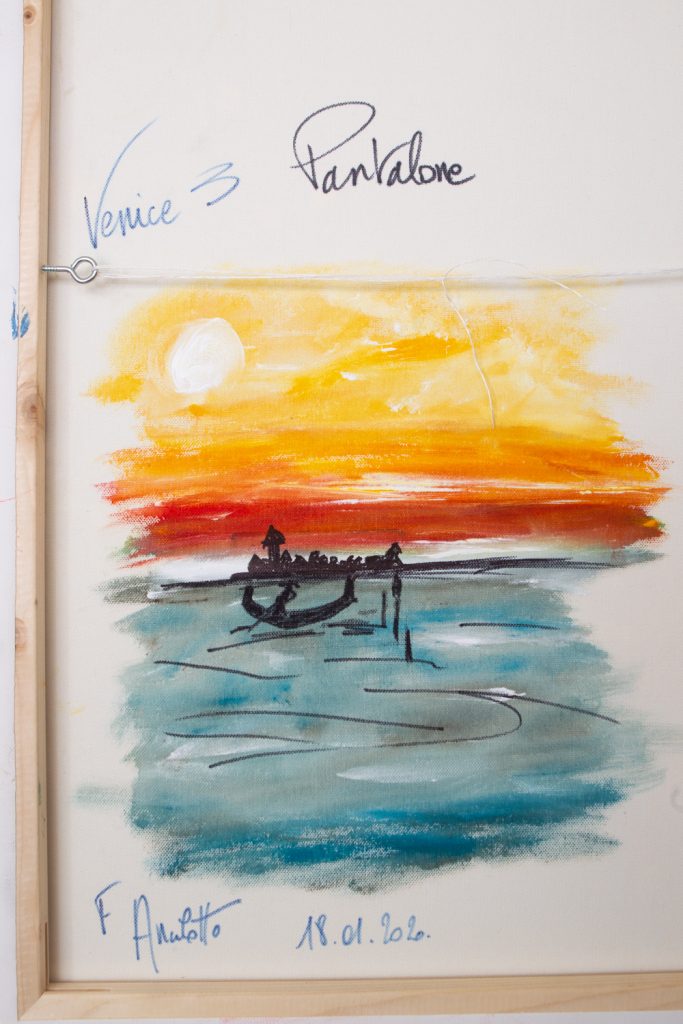 Venice 3 Pantalone
F 
18.01.2020.